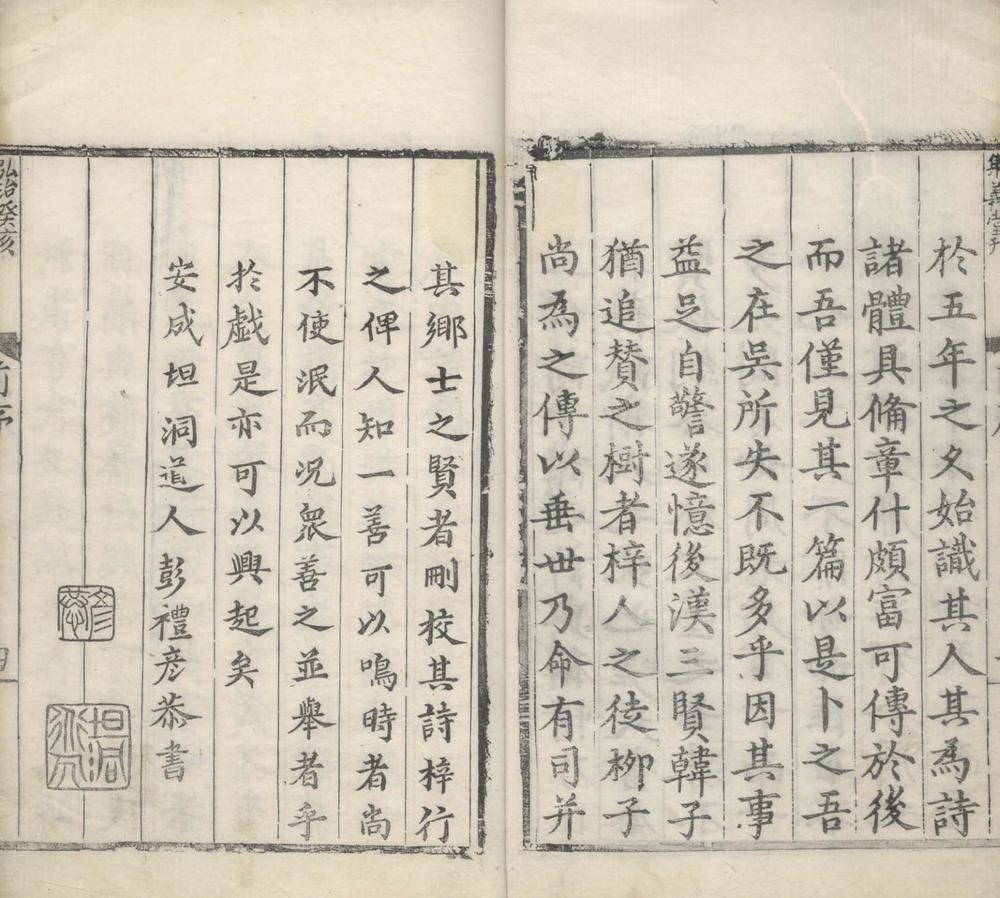 集義堂刊
於五年之久始識其人其為詩
諸體具脩章什頗富可傳於後
而吾僅見其一篇以是卜之吾
之在吳所失不既多乎因其事
益足自警遂憶後漢三賢韓子
猶追賛之樹者梓人之徒柳子
尚為之傳以垂世乃命有司并
其鄉士之賢者刪校其詩梓行
之俾人知一善可以鳴時者尚
不使泯而况衆善之並舉者乎
於戲是亦可以興起矣
安成坦洞道人彭禮彥恭書
彥恭
弘治癸亥
前序
四